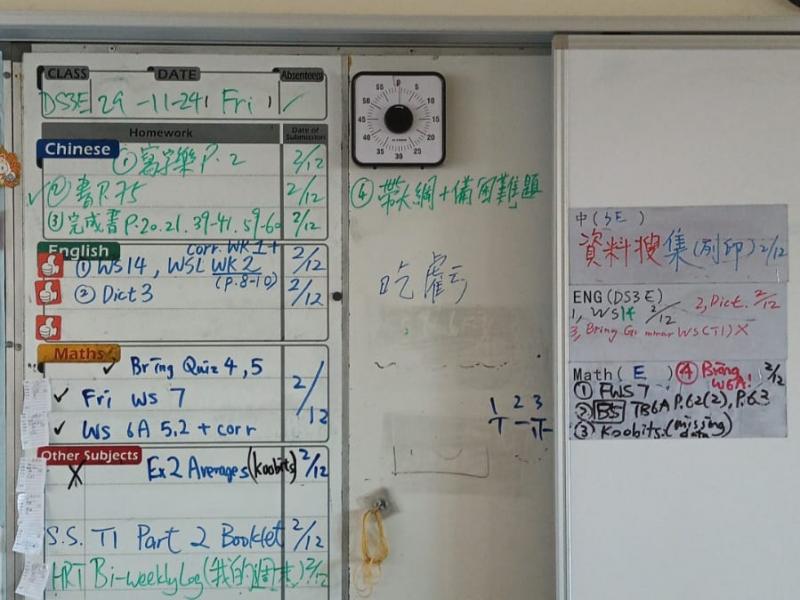 CLASS DATE Absentees
DS3E 29-11-24 Fri 1
Homework Date of Submission
Chinese ① 寫字樂 P.2 2/12
② 書P.75 2/12
③ 完成書P.20.21.39-41.59-60 2/12
④ 帶大綱+備困難題
吃虧
English
corr. WK1+
① WS14, WSL WK2 2/12
(P.8-10)
② Dict 3
Maths
Bring Quiz 4,5
Fri WS 7 2/12
WS 6A 5.2 + corr
Other Subjects
Ex2 Averages (koobits) 2/12
S.S. T1 Part 2 Booklet 2/12
HRT Bi-weekly Log (我的週末) 2/12
0 5 10 15 20 25 30 35 40 45 50 55
1 2 3
中(3E)
資料搜集(列印) 2/12
ENG (DS3E)
1, WS14 2/12 2, Dict. 2/12
3, Bring Grammar WS(T1) X
Math( E ) ④ Bring W6A! 2/12
① FWS 7
② BS TB6A P.62(2), P.63
③ Koobits (missing data)